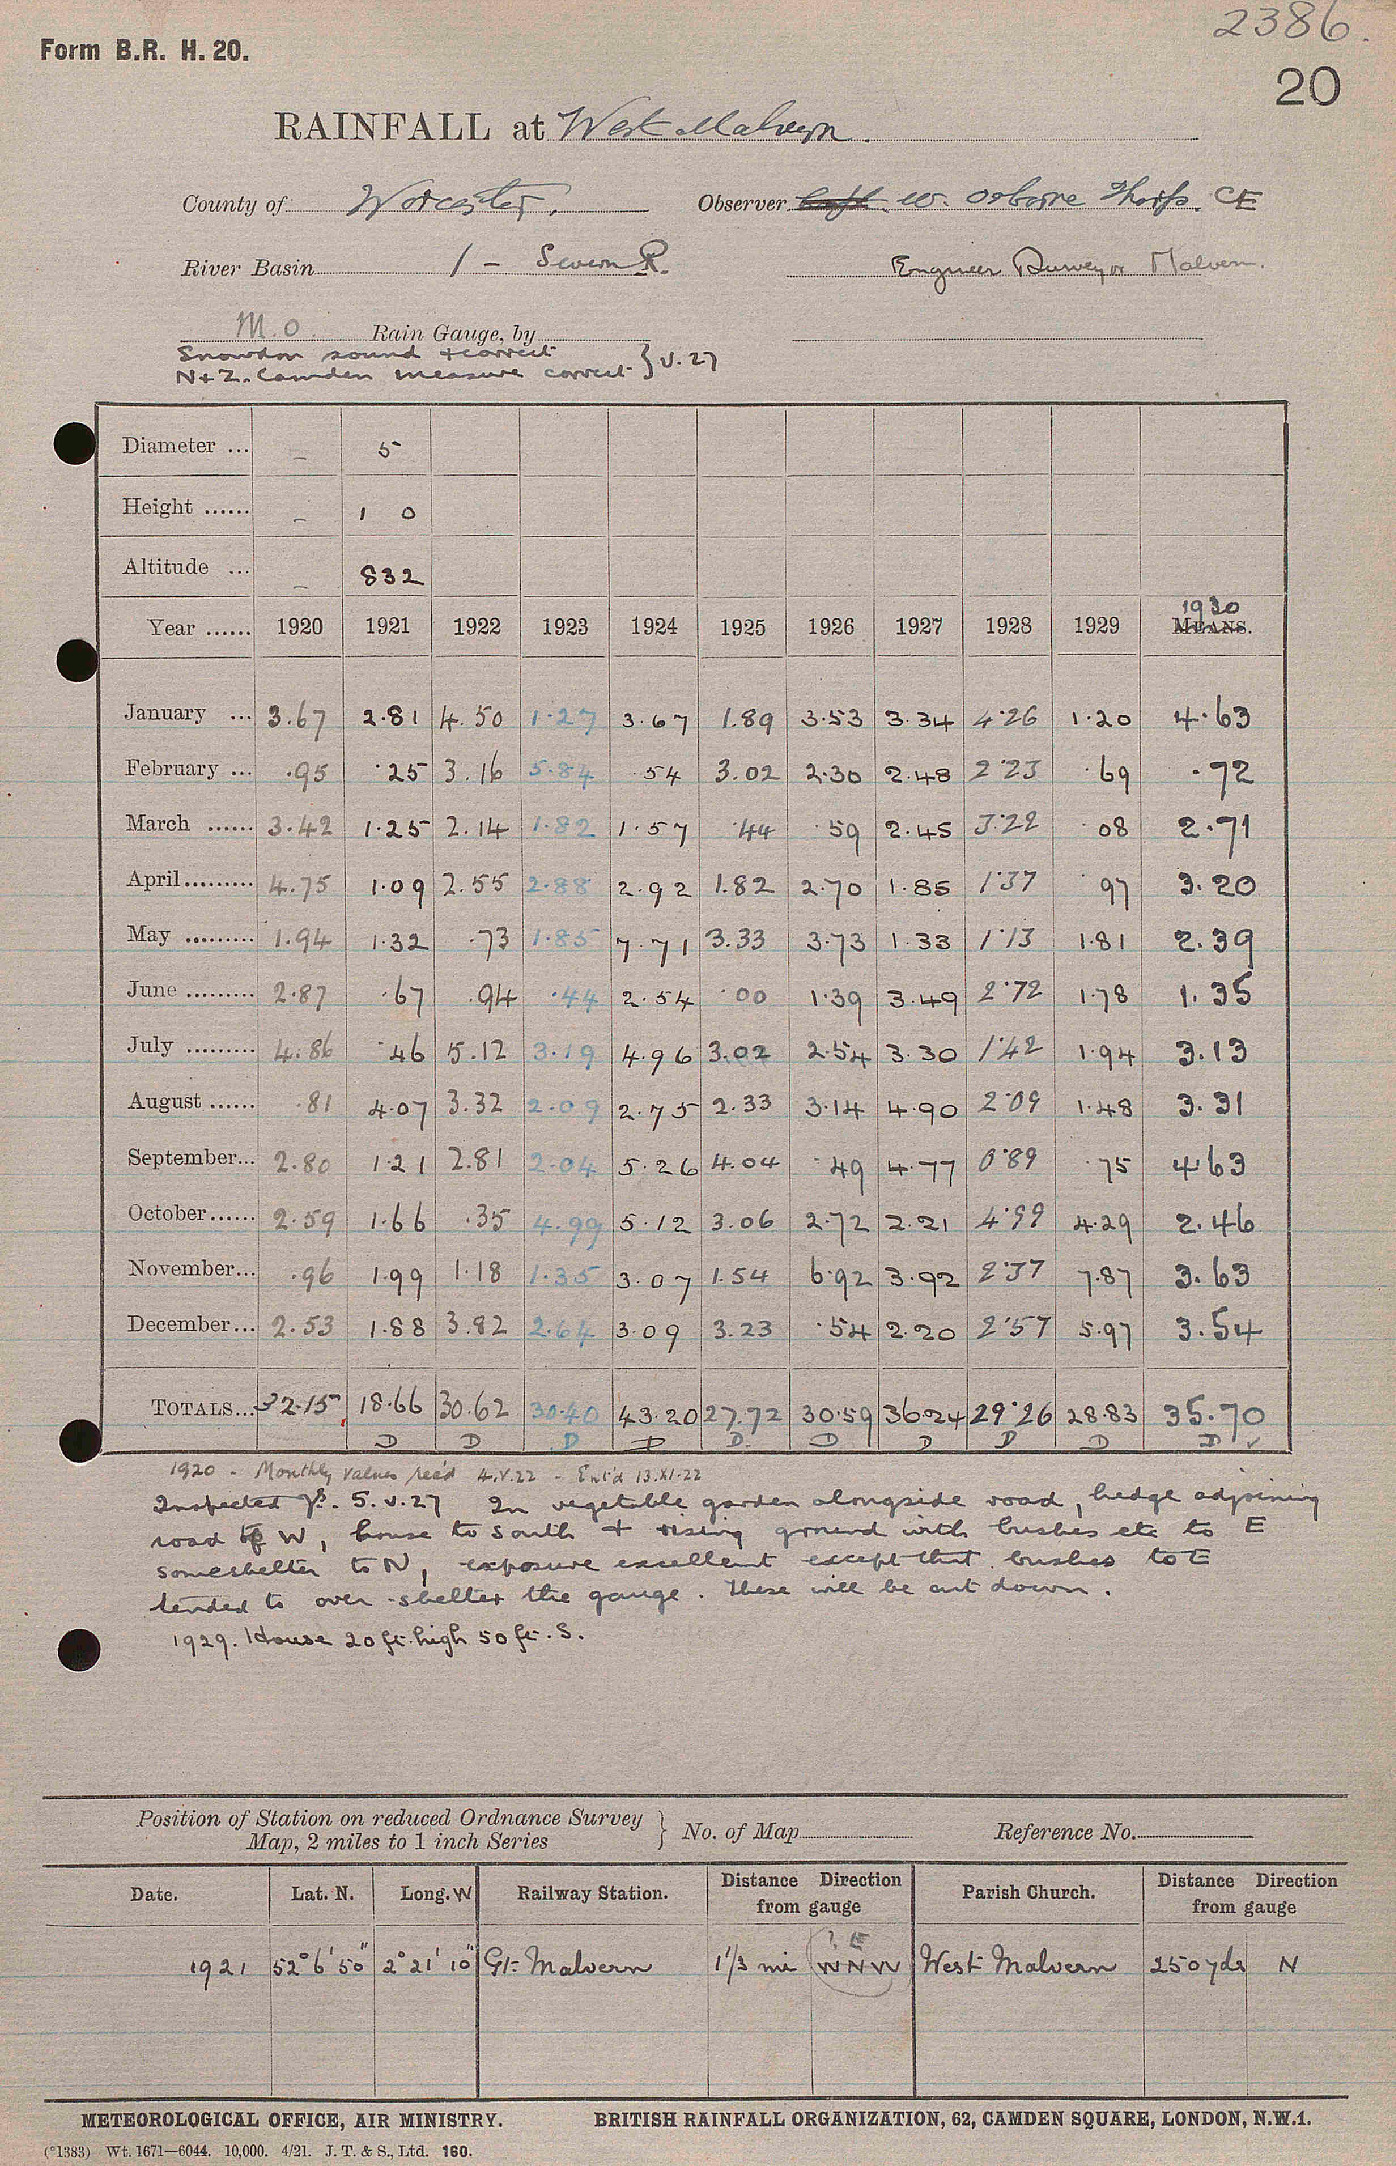 2386.
Form B.R. H. 20.
20
RAINFALL at West Malvern
County of Worcester. Observer W. Osborne Thorp. CE
River Basin 1 - Severn R. Engineer Surveyor Malvern.
M.O. Rain Gauge, by
Snowdon sound + correct
N+Z. Camden measure correct } V.27
Diameter ... - 5
Height ...... - 1 0
Altitude ... - 832
Year ...... 1920 1921 1922 1923 1924 1925 1926 1927 1928 1929 1930 MEANS.
January ... 3.67 2.81 4.50 1.27 3.67 1.89 3.53 3.34 4.26 1.20 4.63
February ... .95 .25 3.16 5.84 .54 3.02 2.30 2.48 2.23 .69 .72
March ...... 3.42 1.25 2.14 1.82 1.57 .44 .59 2.45 3.22 .08 2.71
April......... 4.75 1.09 2.55 2.88 2.92 1.82 2.70 1.85 1.37 .97 3.20
May ......... 1.94 1.32 .73 1.85 7.71 3.33 3.73 1.33 1.13 1.81 2.39
June ......... 2.87 .67 .94 .44 2.54 .00 1.39 3.49 2.72 1.78 1.35
July ......... 4.86 .46 5.12 3.19 4.96 3.02 2.54 3.30 1.42 1.94 3.13
August ...... .81 4.07 3.32 2.09 2.75 2.33 3.14 4.90 2.09 1.48 3.31
September... 2.80 1.21 2.81 2.04 5.26 4.04 .49 4.77 0.89 .75 4.63
October...... 2.59 1.66 .35 4.99 5.12 3.06 2.72 2.21 4.99 4.29 2.46
November... .96 1.99 1.18 1.35 3.07 1.54 6.92 3.92 2.37 7.87 3.63
December... 2.53 1.88 3.82 2.64 3.09 3.23 .54 2.20 2.57 5.97 3.54
TOTALS... 32.15 18.66 30.62 30.40 43.20 27.72 30.59 36.24 29.26 28.83 35.70
D D D D D D D D D D ✓
1920 - Monthly values rec'd 4.V.22 - Ent'd 13.XI.22
Inspected 5.V.27 In vegetable garden alongside road, hedge adjoining
road to W, house to South + rising ground with bushes etc to E
some shelter to N, exposure excellent except that bushes to E
tended to over-shelter the gauge. These will be cut down.
1929. House 20ft. high 50ft. S.
Position of Station on reduced Ordnance Survey
Map, 2 miles to 1 inch Series } No. of Map Reference No.
Date. Lat. N. Long. W Railway Station. Distance Direction from gauge Parish Church. Distance Direction from gauge
? E
1921 52° 6' 50" 2° 21' 10" Gt. Malvern 1 1/3 mi WNW West Malvern 250 yds N
METEOROLOGICAL OFFICE, AIR MINISTRY. BRITISH RAINFALL ORGANIZATION, 62, CAMDEN SQUARE, LONDON, N.W.1.
(*1383) Wt. 1671—6044. 10,000. 4/21. J. T. & S., Ltd. 160.